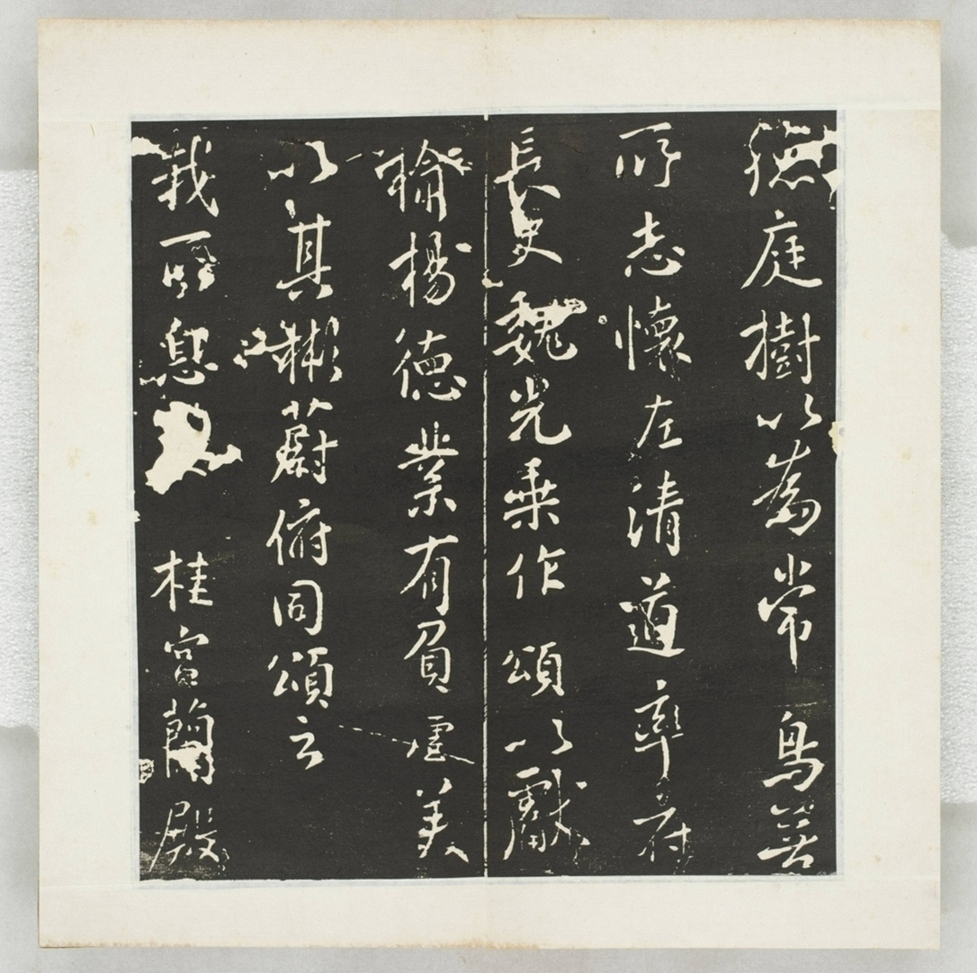 德庭樹以為常鳥無
所志懷左清道率府
長史魏光乘作頌以獻
揄揚德業有負虛美
以其彬蔚俯同頌云
我所息桂宮蘭殿